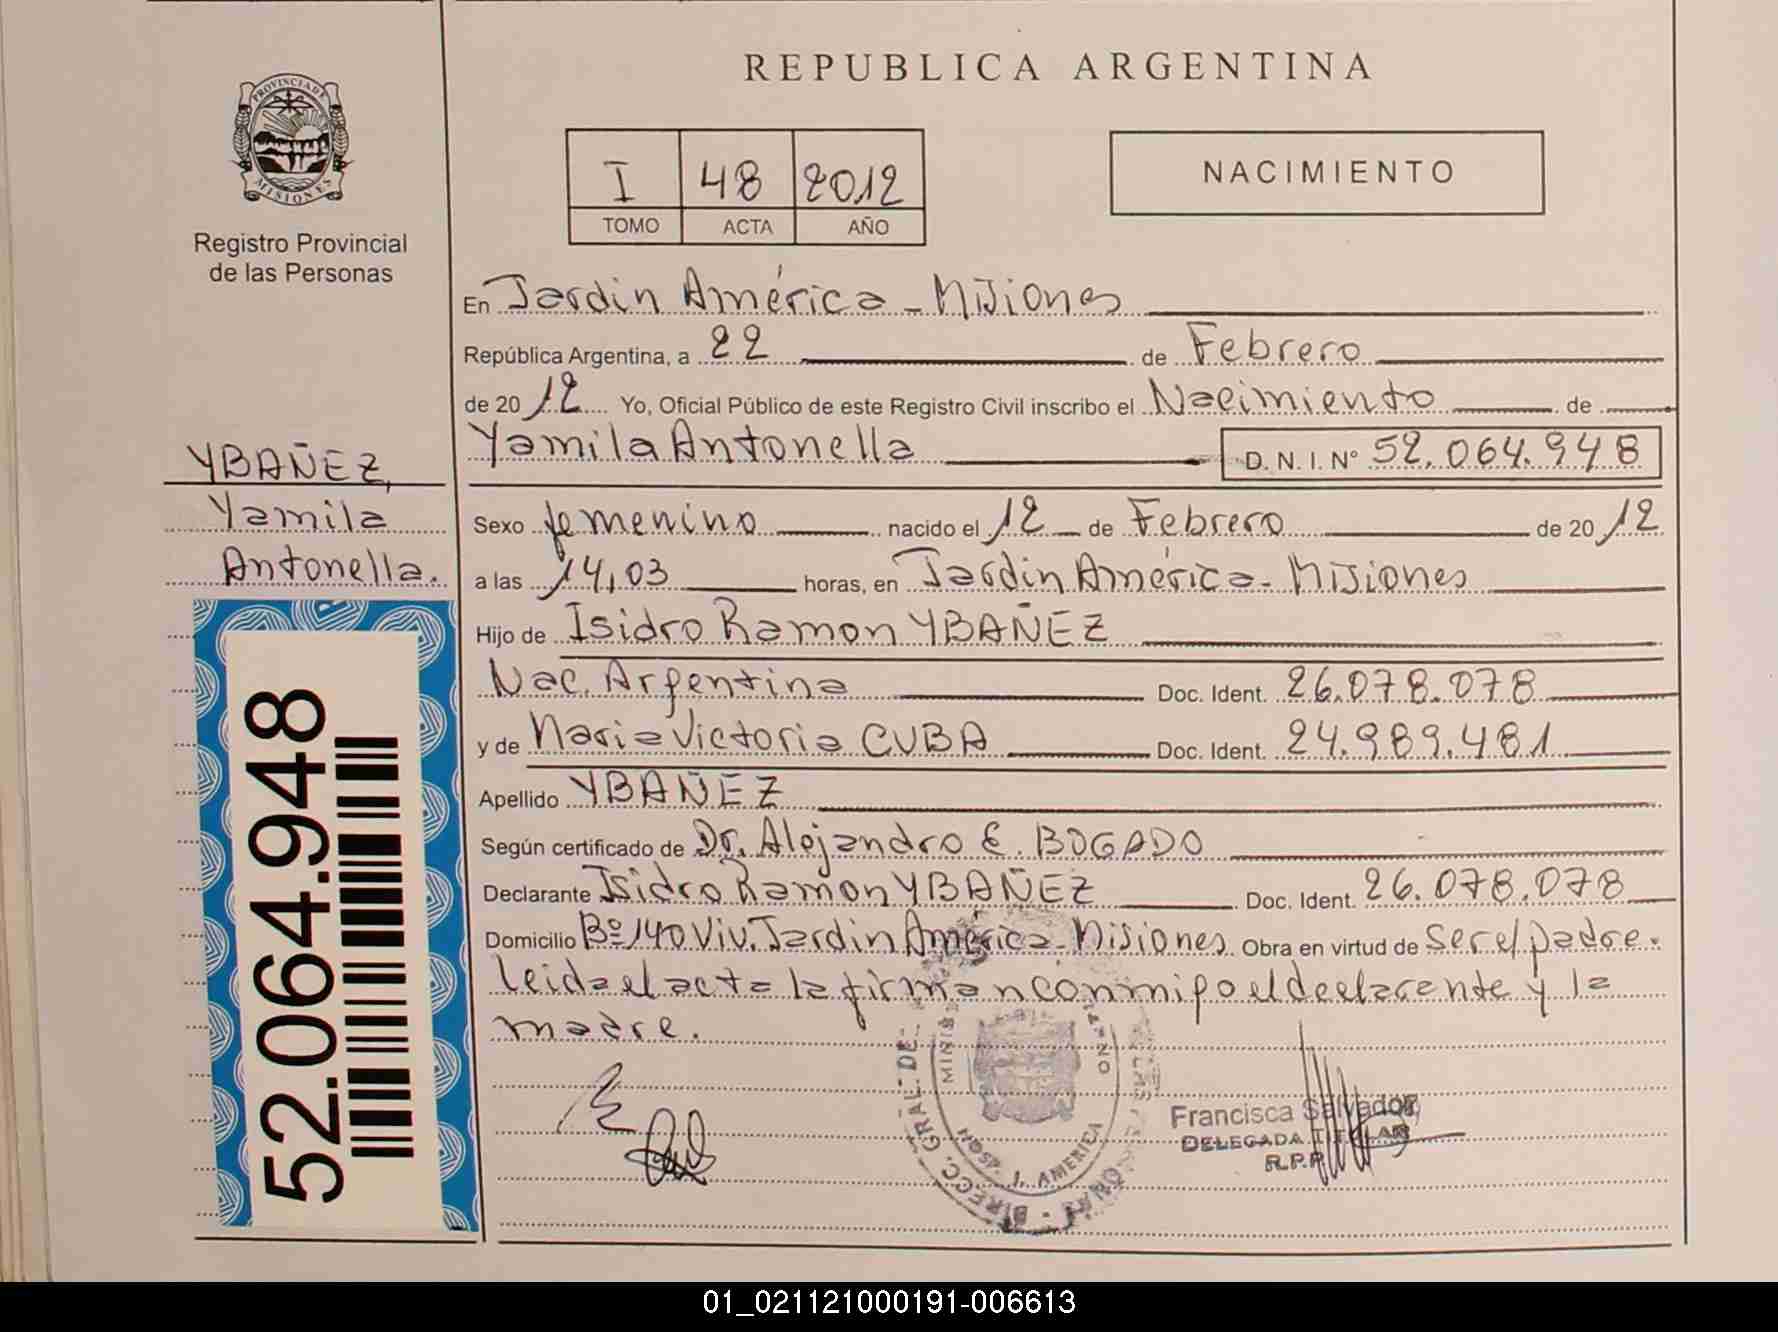 REPUBLICA ARGENTINA
PROVINCIA DE MISIONES
Registro Provincial
de las Personas
I 48 2012
TOMO ACTA AÑO
NACIMIENTO
En Jardin América - Misiones
República Argentina, a 22 de Febrero
de 2012 Yo, Oficial Público de este Registro Civil inscribo el Nacimiento de
Yamila Antonella D. N. I. Nº 52.064.948
YBAÑEZ,
Yamila
Antonella.
Sexo femenino nacido el 12 de Febrero de 2012
a las 14,03 horas, en Jardin América - Misiones
Hijo de Isidro Ramon YBAÑEZ
Nac. Argentina Doc. Ident. 26.078.078
y de Maria Victoria CUBA Doc. Ident. 24.989.481
Apellido YBAÑEZ
Según certificado de Dr. Alejandro E. BOGADO
Declarante Isidro Ramon YBAÑEZ Doc. Ident. 26.078.078
Domicilio Bº 140 Viv. Jardin América - Misiones Obra en virtud de ser el padre.
leida el acta la firman conmigo el declarante y la
madre.
52.064.948
DIRECC. GRAL. DE
AMERICA
Francisca Salvador
DELEGADA TITULAR
R.P.P
01_021121000191-006613